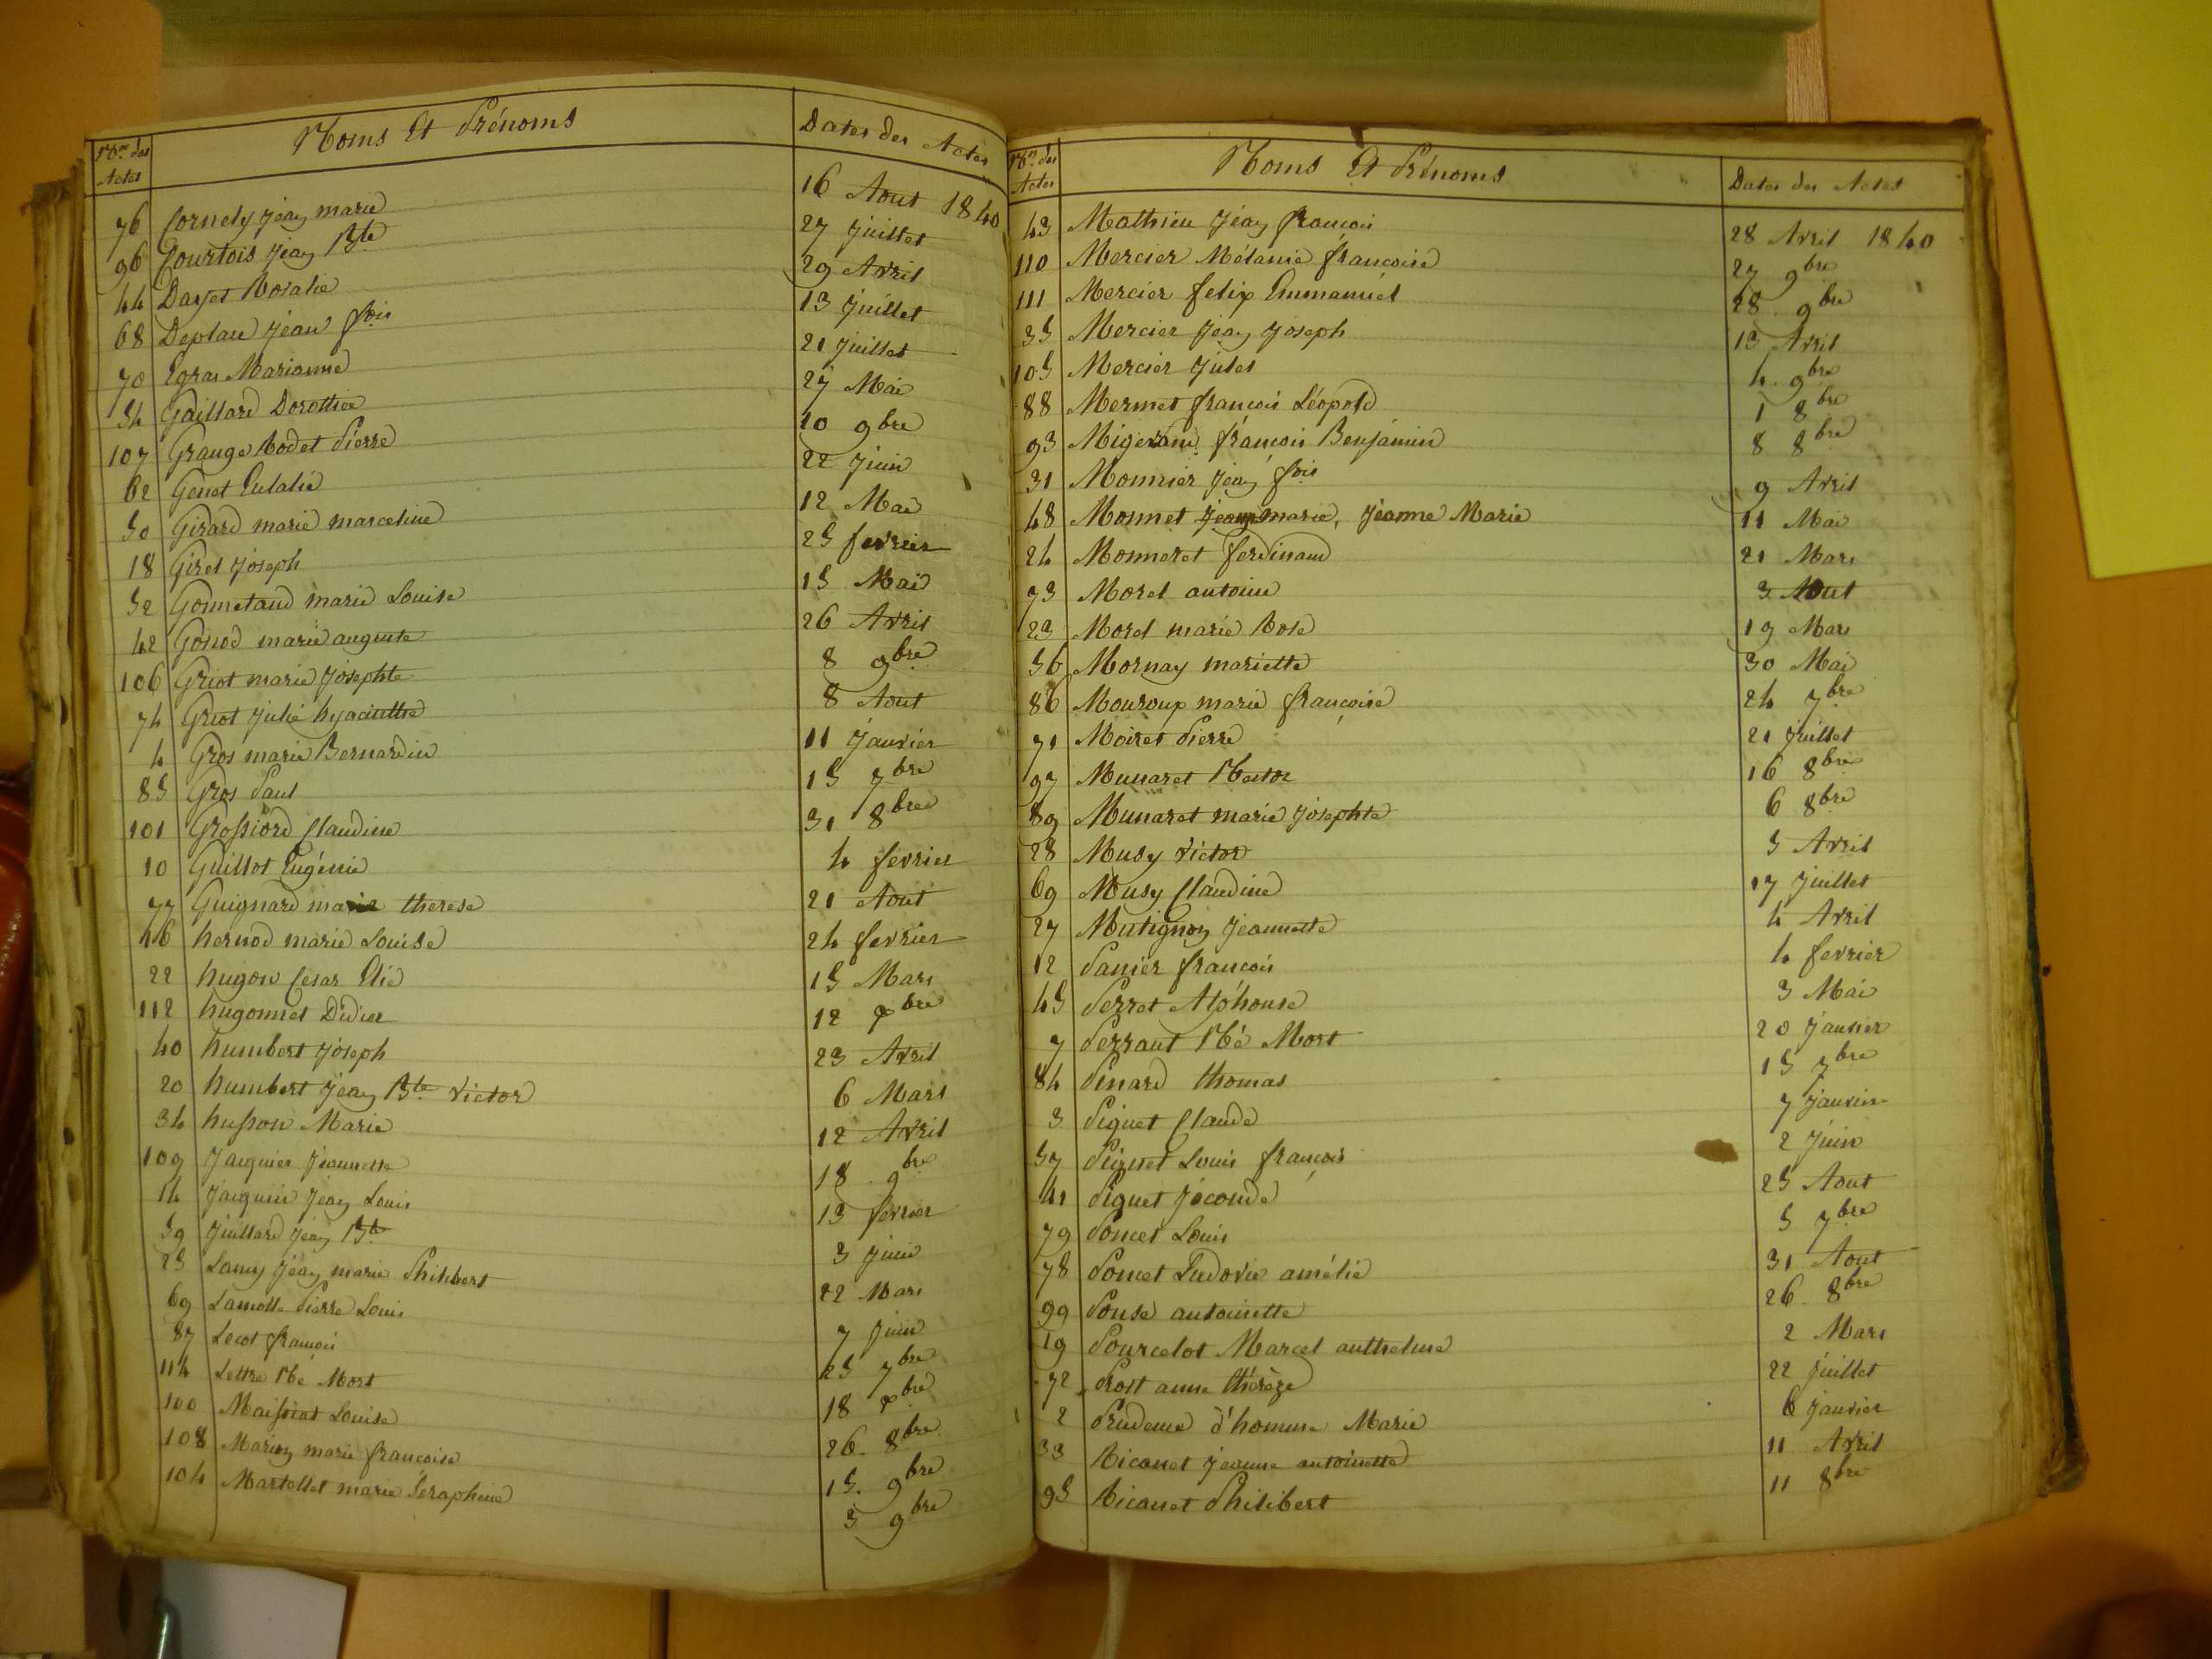 Nos des Actes Noms Et Prénoms Dates des Actes
76 Cornely jean marie 16 Aout 1840
96 Courtois jean Bte 27 juillet
44 Dayet Rosalie 29 Avril
68 Deplau jean fois 13 juillet
70 Egras Marianne 21 juillet
54 Gaillard Dorothée 27 Mai
107 Grange Rodet Pierre 10 9bre
62 Genet Eulalie 22 juin
50 Girard marie marceline 12 Mai
18 Girel joseph 25 fevrier
52 Gonnetand marie Louise 15 Mai
42 Gonod marie auguste 26 Avril
106 Griot marie josephte 8 9bre
74 Griot julie hyacinthe 8 Aout
4 Gros marie Bernardin 11 janvier
85 Gros Paul 15 7bre
101 Grossiord Claudine 31 8bre
10 Guillot Eugénie 4 fevrier
77 Guignard marie therese 21 Aout
46 hernod marie Louise 24 fevrier
22 hugon Cesar Elie 15 Mars
112 hugonnet Didier 12 xbre
40 humbert joseph 23 Avril
20 humbert jean Bte victor 6 Mars
34 husson Marie 12 Avril
109 jacquier jeannette 18 9bre
14 jacquin jean Louis 13 fevrier
59 juillard jean Bte 3 juin
25 Lamy jean marie Philibert 22 Mars
69 Lamotte Pierre Louis 7 juin
87 Lecot francois 25 7bre
114 Lettre Né Mort 18 xbre
100 Maissiat Louise 26. 8bre
108 Marion marie francoise 15. 9bre
104 Martellet marie Séraphine 3 9bre
Nos des Actes Noms Et Prénoms Dates des Actes
43 Mathieu jean francois 28 Avril 1840
110 Mercier Mélanie francoise 27 9bre
111 Mercier felix Emmanuel 28. 9bre
35 Mercier jean joseph 13 Avril
105 Mercier jules 4. 9bre
88 Mermet francois Léopold 1 8bre
93 Migerand francois Benjamin 8 8bre
31 Monnier jean fois 9 Avril
48 Monnet jean marie, jeanne Marie 11 Mai
24 Monneret ferdinand 21 Mars
73 Morel antoine 3 Aout
23 Morel marie Rose 19 Mars
56 Mornay mariette 30 Mai
86 Mouroux marie françoise 24 7bre
71 Moiret Pierre 21 juillet
97 Munaret Nestor 16 8bre
89 Munaret marie josephte 6 8bre
28 Musy victor 5 Avril
69 Musy Claudine 17 juillet
27 Mutignon jeannette 4 Avril
12 Panier francois 4 fevrier
45 Perret Alphonse 3 Mai
7 Perraut Né Mort 20 janvier
84 Pinard thomas 15 7bre
3 Piguet Claude 7 janvier
57 Piguet Louis francois 2 juin
41 Piguet joconde 25 Aout
79 Poncet Louis 5 7bre
78 Poncet Ludovie amélie 31 Aout
99 Ponse antoinette 26. 8bre
19 Pourcelot Marcel anthelme 2 Mars
72 Prost anne thérèze 22 juillet
2 Prudeme d'homme Marie 6 janvier
33 Ricanet jeanne antoinette 11 Avril
95 Ricanet Philibert 11 8bre